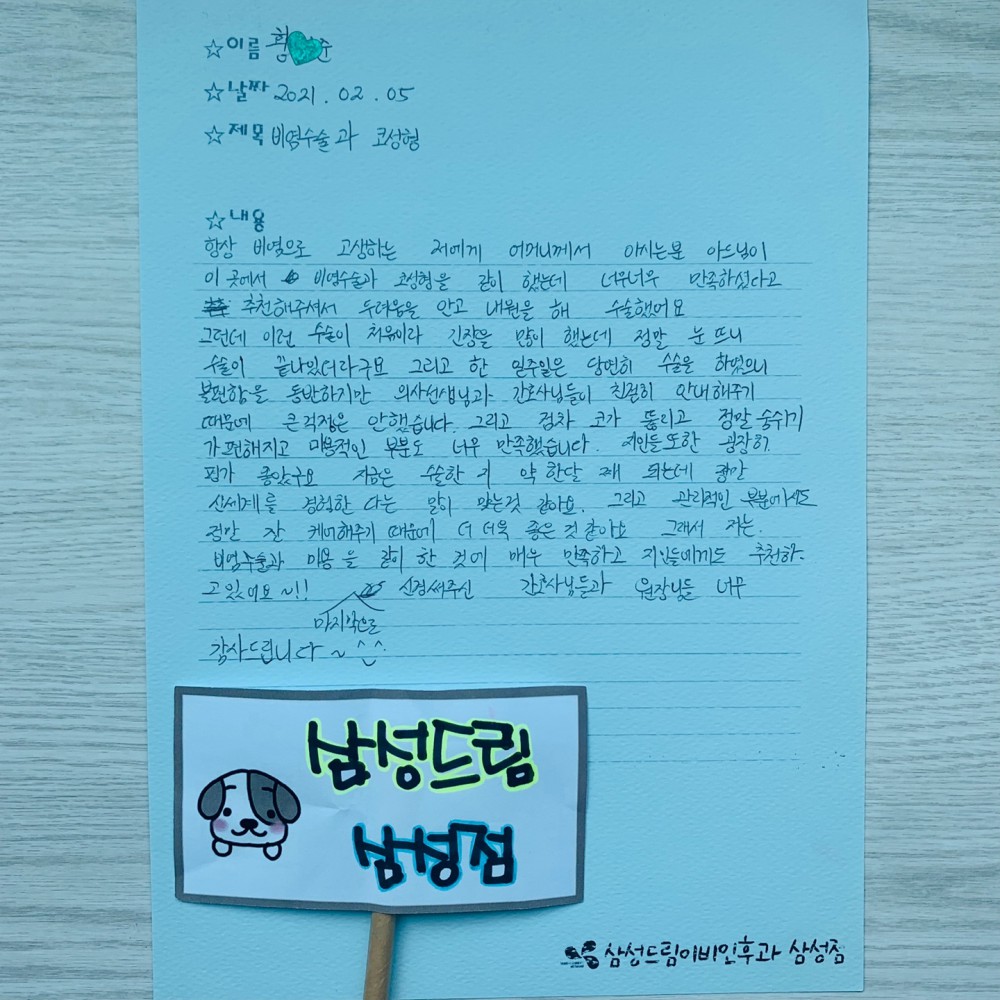 ☆이름 황 준
☆날짜 2021. 02. 05
☆제목 비염수술과 코성형
☆내용
항상 비염으로 고생하는 저에게 어머니께서 아시는분 아드님이
이 곳에서 비염수술과 코성형을 같이 했는데 너무너무 만족하셨다고
추천해주셔서 두려움을 안고 내원을 해 수술했어요
그런데 이런 수술이 처음이라 긴장을 많이 했는데 정말 눈 뜨니
수술이 끝나있더라구요 그리고 한 일주일은 당연히 수술을 하였으니
불편함을 동반하지만 의사선생님과 간호사님들이 친절히 안내해주기
때문에 큰걱정은 안했습니다. 그리고 점차 코가 뚫리고 정말 숨쉬기
가 편해지고 미용적인 부분도 너무 만족했습니다. 지인들또한 굉장히
평가 좋았구요 지금은 수술한 지 약 한달 째 되는데 정말
신세계를 경험한 다는 말이 맞는것 같아요. 그리고 관리적인 부분에서도
정말 잘 케어해주기 때문에 더 더욱 좋은 것 같아요 그래서 저는.
비염수술과 미용을 같이 한 것에 매우 만족하고 지인들에게도 추천하
고 있어요~!! 신경써주신 간호사님들과 원장님들 너무
마지막으로
감사드립니다 ~ ^_^
삼성드림
삼성점
삼성드림이비인후과 삼성점